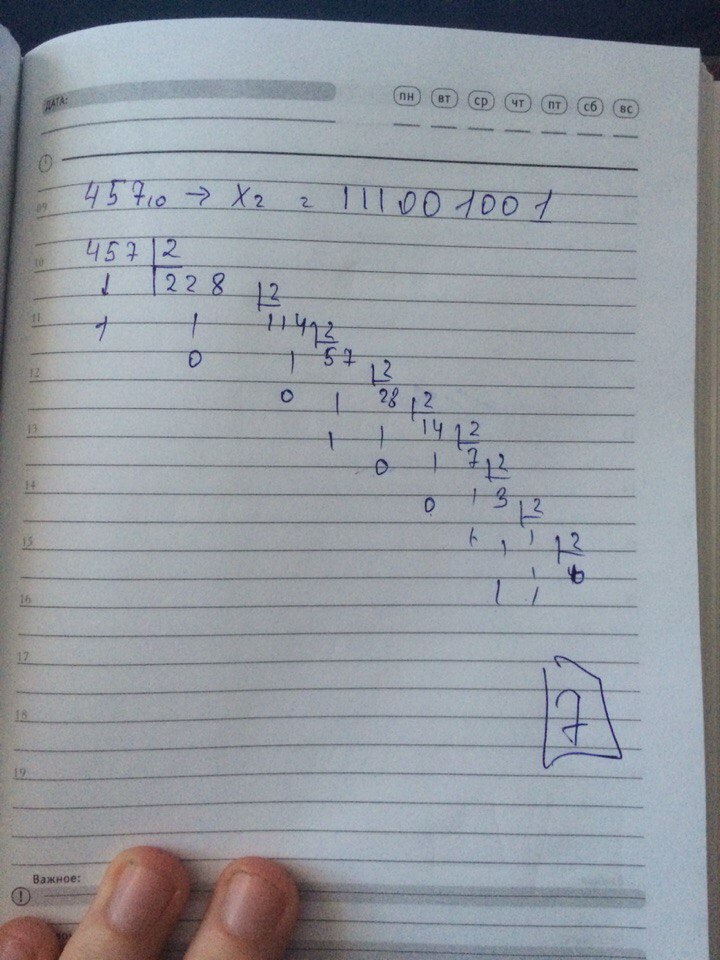 ДАТА:
пн вт ср чт пт сб вс
09 457₁₀ → X₂ = 111001001
10 457 2
1 228 2
11 1 1 114 2
0 1 57 2
12 0 1 28 2
13 1 1 14 2
0 1 7 2
14 0 1 3 2
15 1 1 1 2
1 0
16 1 1
17
7
18
19
Важное: